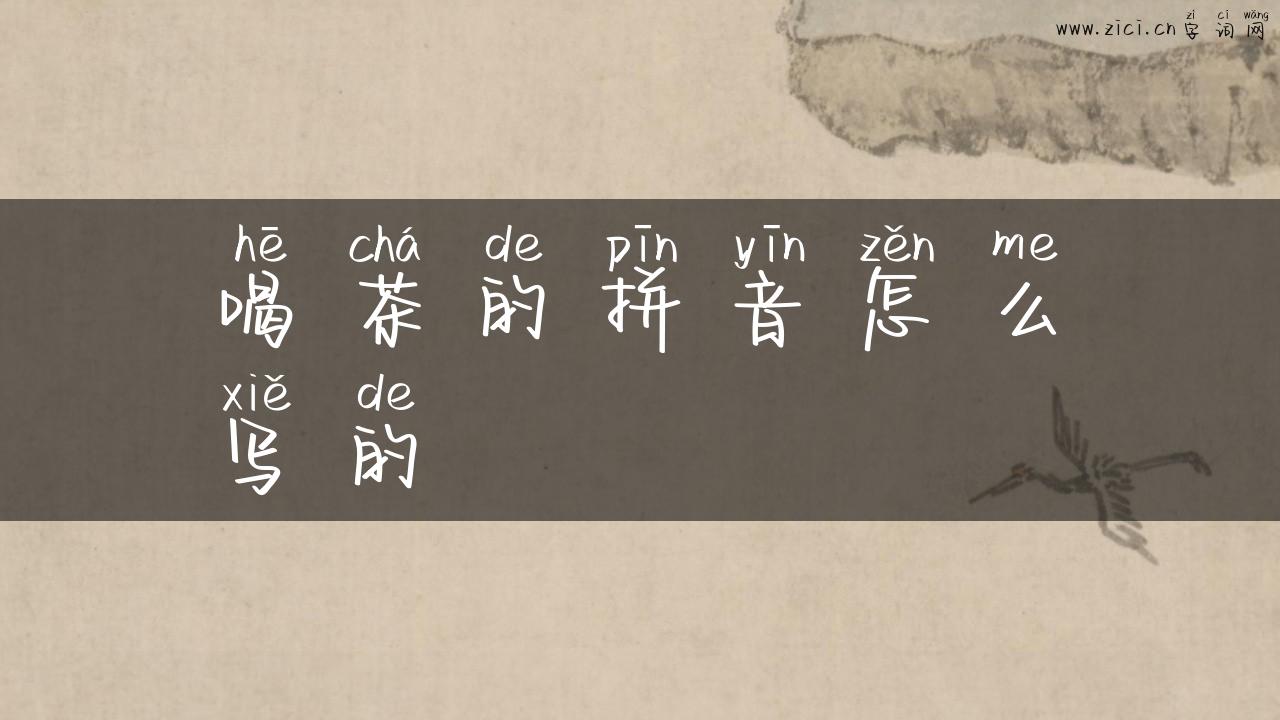 zì cí wǎng
www.zici.cn 字词网
hē chá de pīn yīn zěn me
喝茶的拼音怎么
xiě de
写的